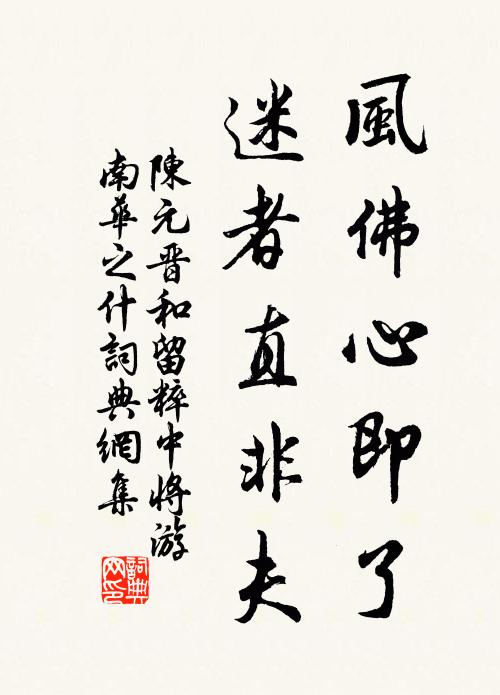 風佛心即了
迷者直非夫
陳元晋和留粹中將游
南華之什詞典網集
詞典
网印